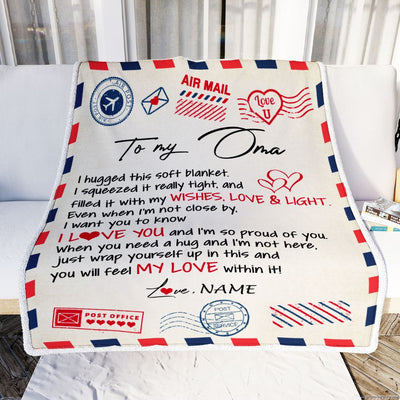 AIR MAIL
Love U
To my Oma
I hugged this soft blanket.
I squeezed it really tight, and
filled it with my WISHES, LOVE & LIGHT.
Even when I'm not close by.
I want you to know
I LOVE YOU and I'm so proud of you.
When you need a hug and I'm not here,
just wrap yourself up in this and
you will feel MY LOVE within it!
Love, NAME
POST OFFICE
POST
SERVICE